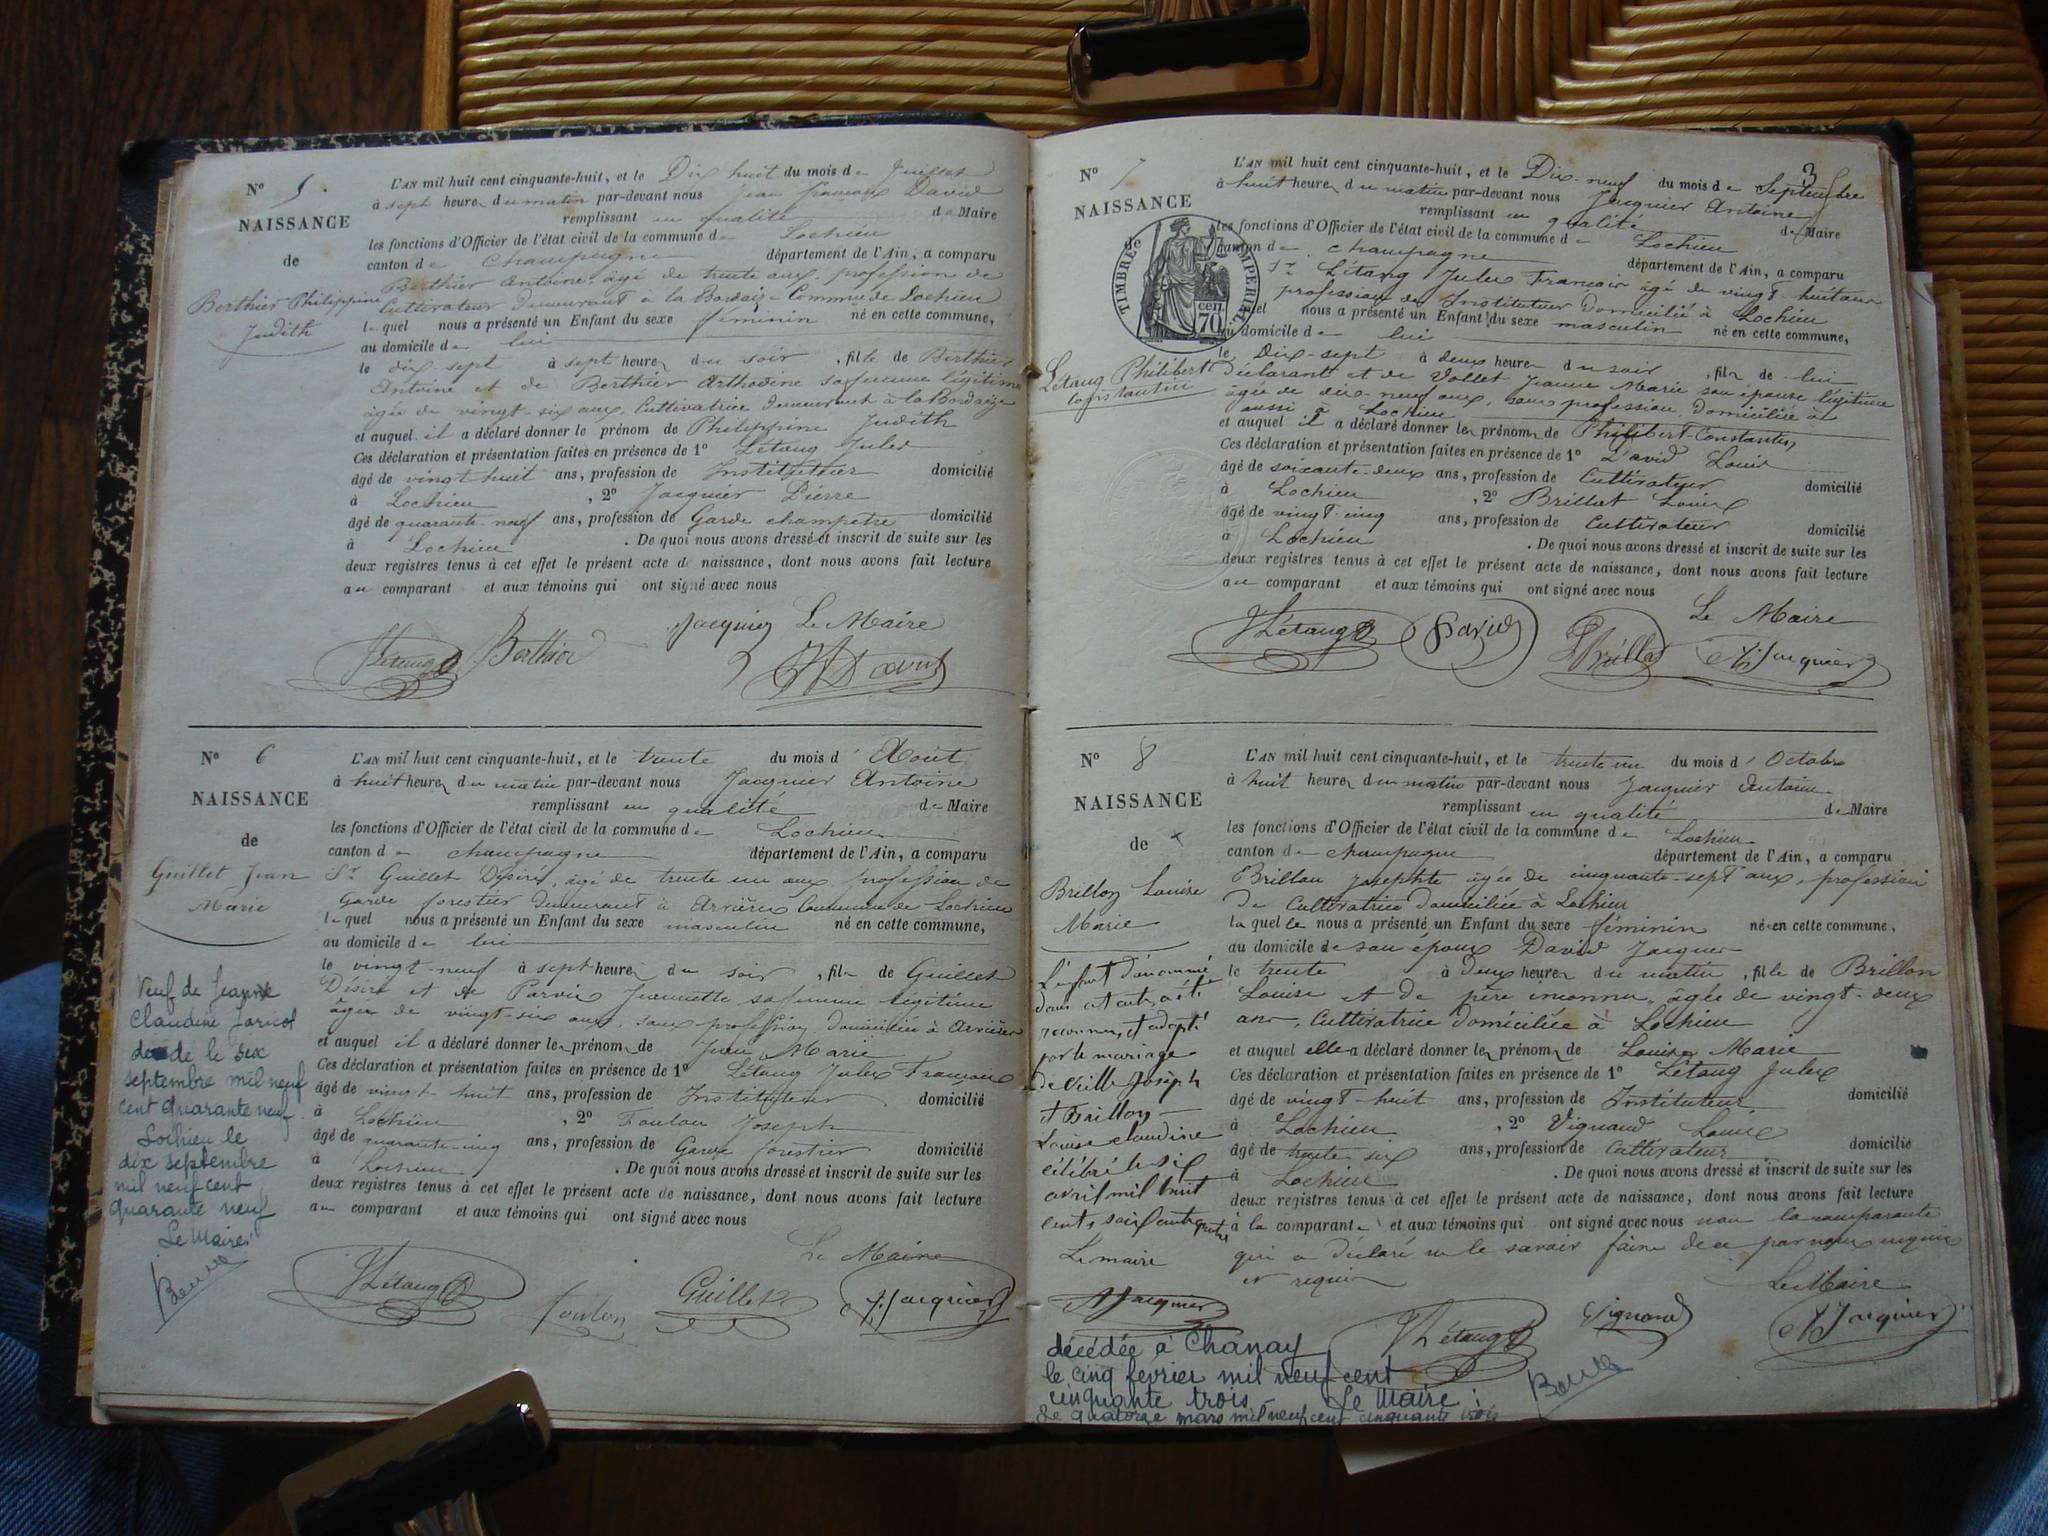 N° 5
NAISSANCE
de
Berthier Philippine
Judith
L'AN mil huit cent cinquante-huit, et le Dix huit du mois de Juillet
à sept heures du matin par-devant nous Jean françois David
remplissant en qualité de Maire
les fonctions d'Officier de l'état civil de la commune de Lochieu
canton de Champagne département de l'Ain, a comparu
Berthier Antoine, âgé de trente ans, profession de
Cultivateur demeurant à la Bordaize Commune de Lochieu
lequel nous a présenté un Enfant du sexe féminin né en cette commune,
au domicile de lui
le dix-sept à sept heures du soir, fille de Berthier
Antoine et de Berthier sa femme légitime
âgée de vingt-six ans, Cultivatrice demeurant à la Bordaize
et auquel il a déclaré donner le prénom de Philippine Judith
Ces déclaration et présentation faites en présence de 1° Létang Jules
âgé de vingt huit ans, profession de Instituteur domicilié
à Lochieu, 2° Jacquier Pierre
âgé de quarante-neuf ans, profession de Garde champêtre domicilié
à Lochieu. De quoi nous avons dressé et inscrit de suite sur les
deux registres tenus à cet effet le présent acte de naissance, dont nous avons fait lecture
au comparant et aux témoins qui ont signé avec nous
Jacquier Le Maire
JLétang Berthier David
N° 6
NAISSANCE
de
Guillet Jean
Marie
Veuf de Jeanne
Claudine Jaricot
de le six
septembre mil neuf
cent quarante neuf
Lochieu le
dix septembre
mil neuf cent
quarante neuf
Le Maire
L'AN mil huit cent cinquante-huit, et le trente du mois d'Août
à huit heures du matin par-devant nous Jacquier Antoine
remplissant en qualité de Maire
les fonctions d'Officier de l'état civil de la commune de Lochieu
canton de champagne département de l'Ain, a comparu
Sr Guillet Désiré, âgé de trente un ans profession de
Garde forestier demeurant à Arvières Commune de Lochieu
lequel nous a présenté un Enfant du sexe masculin né en cette commune,
au domicile de lui
le vingt-neuf à sept heures du soir, fils de Guillet
Désiré et de Jeannette sa femme légitime
âgée de vingt-six ans, sans profession domiciliée à Arvières
et auquel il a déclaré donner les prénoms de Jean Marie
Ces déclaration et présentation faites en présence de 1° Létang Jules François
âgé de vingt-huit ans, profession de Instituteur domicilié
à Lochieu, 2° Foulon Joseph
âgé de quarante-cinq ans, profession de Garde forestier domicilié
à Lochieu. De quoi nous avons dressé et inscrit de suite sur les
deux registres tenus à cet effet le présent acte de naissance, dont nous avons fait lecture
au comparant et aux témoins qui ont signé avec nous
Le Maire
JLétang Foulon Guillet AJacquier
3
N° 7
NAISSANCE
TIMBRE IMPERIAL
de
70 cen.
Létang Philibert
Constantin
L'AN mil huit cent cinquante-huit, et le Dix-neuf du mois de Septembre
à huit heures du matin par-devant nous Jacquier Antoine
remplissant en qualité de Maire
les fonctions d'Officier de l'état civil de la commune de Lochieu
canton de champagne département de l'Ain, a comparu
Sr Létang Jules François âgé de vingt-huit ans
profession de Instituteur Domicilié à Lochieu
lequel nous a présenté un Enfant du sexe masculin né en cette commune,
au domicile de lui
le Dix-sept à deux heures du soir, fils de lui
déclarant et de Vollet Jeanne Marie son épouse légitime
âgée de dix-neuf ans, sans profession, domiciliée
aussi à Lochieu
et auquel il a déclaré donner les prénoms de Philibert-Constantin
Ces déclaration et présentation faites en présence de 1° David Louis
âgé de soixante-deux ans, profession de Cultivateur domicilié
à Lochieu, 2° Brillat Louis
âgé de vingt-cinq ans, profession de Cultivateur domicilié
à Lochieu. De quoi nous avons dressé et inscrit de suite sur les
deux registres tenus à cet effet le présent acte de naissance, dont nous avons fait lecture
au comparant et aux témoins qui ont signé avec nous
Le Maire
JLétang David Brillat AJacquier
N° 8
NAISSANCE
de
Brillon Louise
Marie
L'enfant dénommé
dans cet acte, a été
reconnu, et adopté
par le mariage
de Joseph
et Brillon
Louise claudine
célébré le six
avril mil huit
cent, soixante quatre
Le maire
AJacquier
L'AN mil huit cent cinquante-huit, et le trente un du mois d'Octobre
à huit heures du matin par-devant nous Jacquier Antoine
remplissant en qualité de Maire
les fonctions d'Officier de l'état civil de la commune de Lochieu
canton de champagne département de l'Ain, a comparu
Brillon Josephte âgée de cinquante-sept ans, profession
De Cultivatrice domiciliée à Lochieu
laquelle nous a présenté un Enfant du sexe féminin né en cette commune,
au domicile de son époux David
le trente à Deux heures du matin, fille de Brillon
Louise et de père inconnu, âgée de vingt-deux
ans, Cultivatrice domiciliée à Lochieu
et auquel elle a déclaré donner les prénoms de Louise Marie
Ces déclaration et présentation faites en présence de 1° Létang Jules
âgé de vingt-huit ans, profession de Instituteur domicilié
à Lochieu, 2° Vignand Louis
âgé de trente six ans, profession de Cultivateur domicilié
à Lochieu. De quoi nous avons dressé et inscrit de suite sur les
deux registres tenus à cet effet le présent acte de naissance, dont nous avons fait lecture
à la comparante et aux témoins qui ont signé avec nous non la comparante
qui a déclaré ne le savoir faire de ce par nous enquise
et requise
Le Maire
JLétang Vignand AJacquier
décédée à Chanay
le cinq février mil neuf cent
cinquante trois Le Maire :
Le quatorze mars mil neuf cent cinquante trois